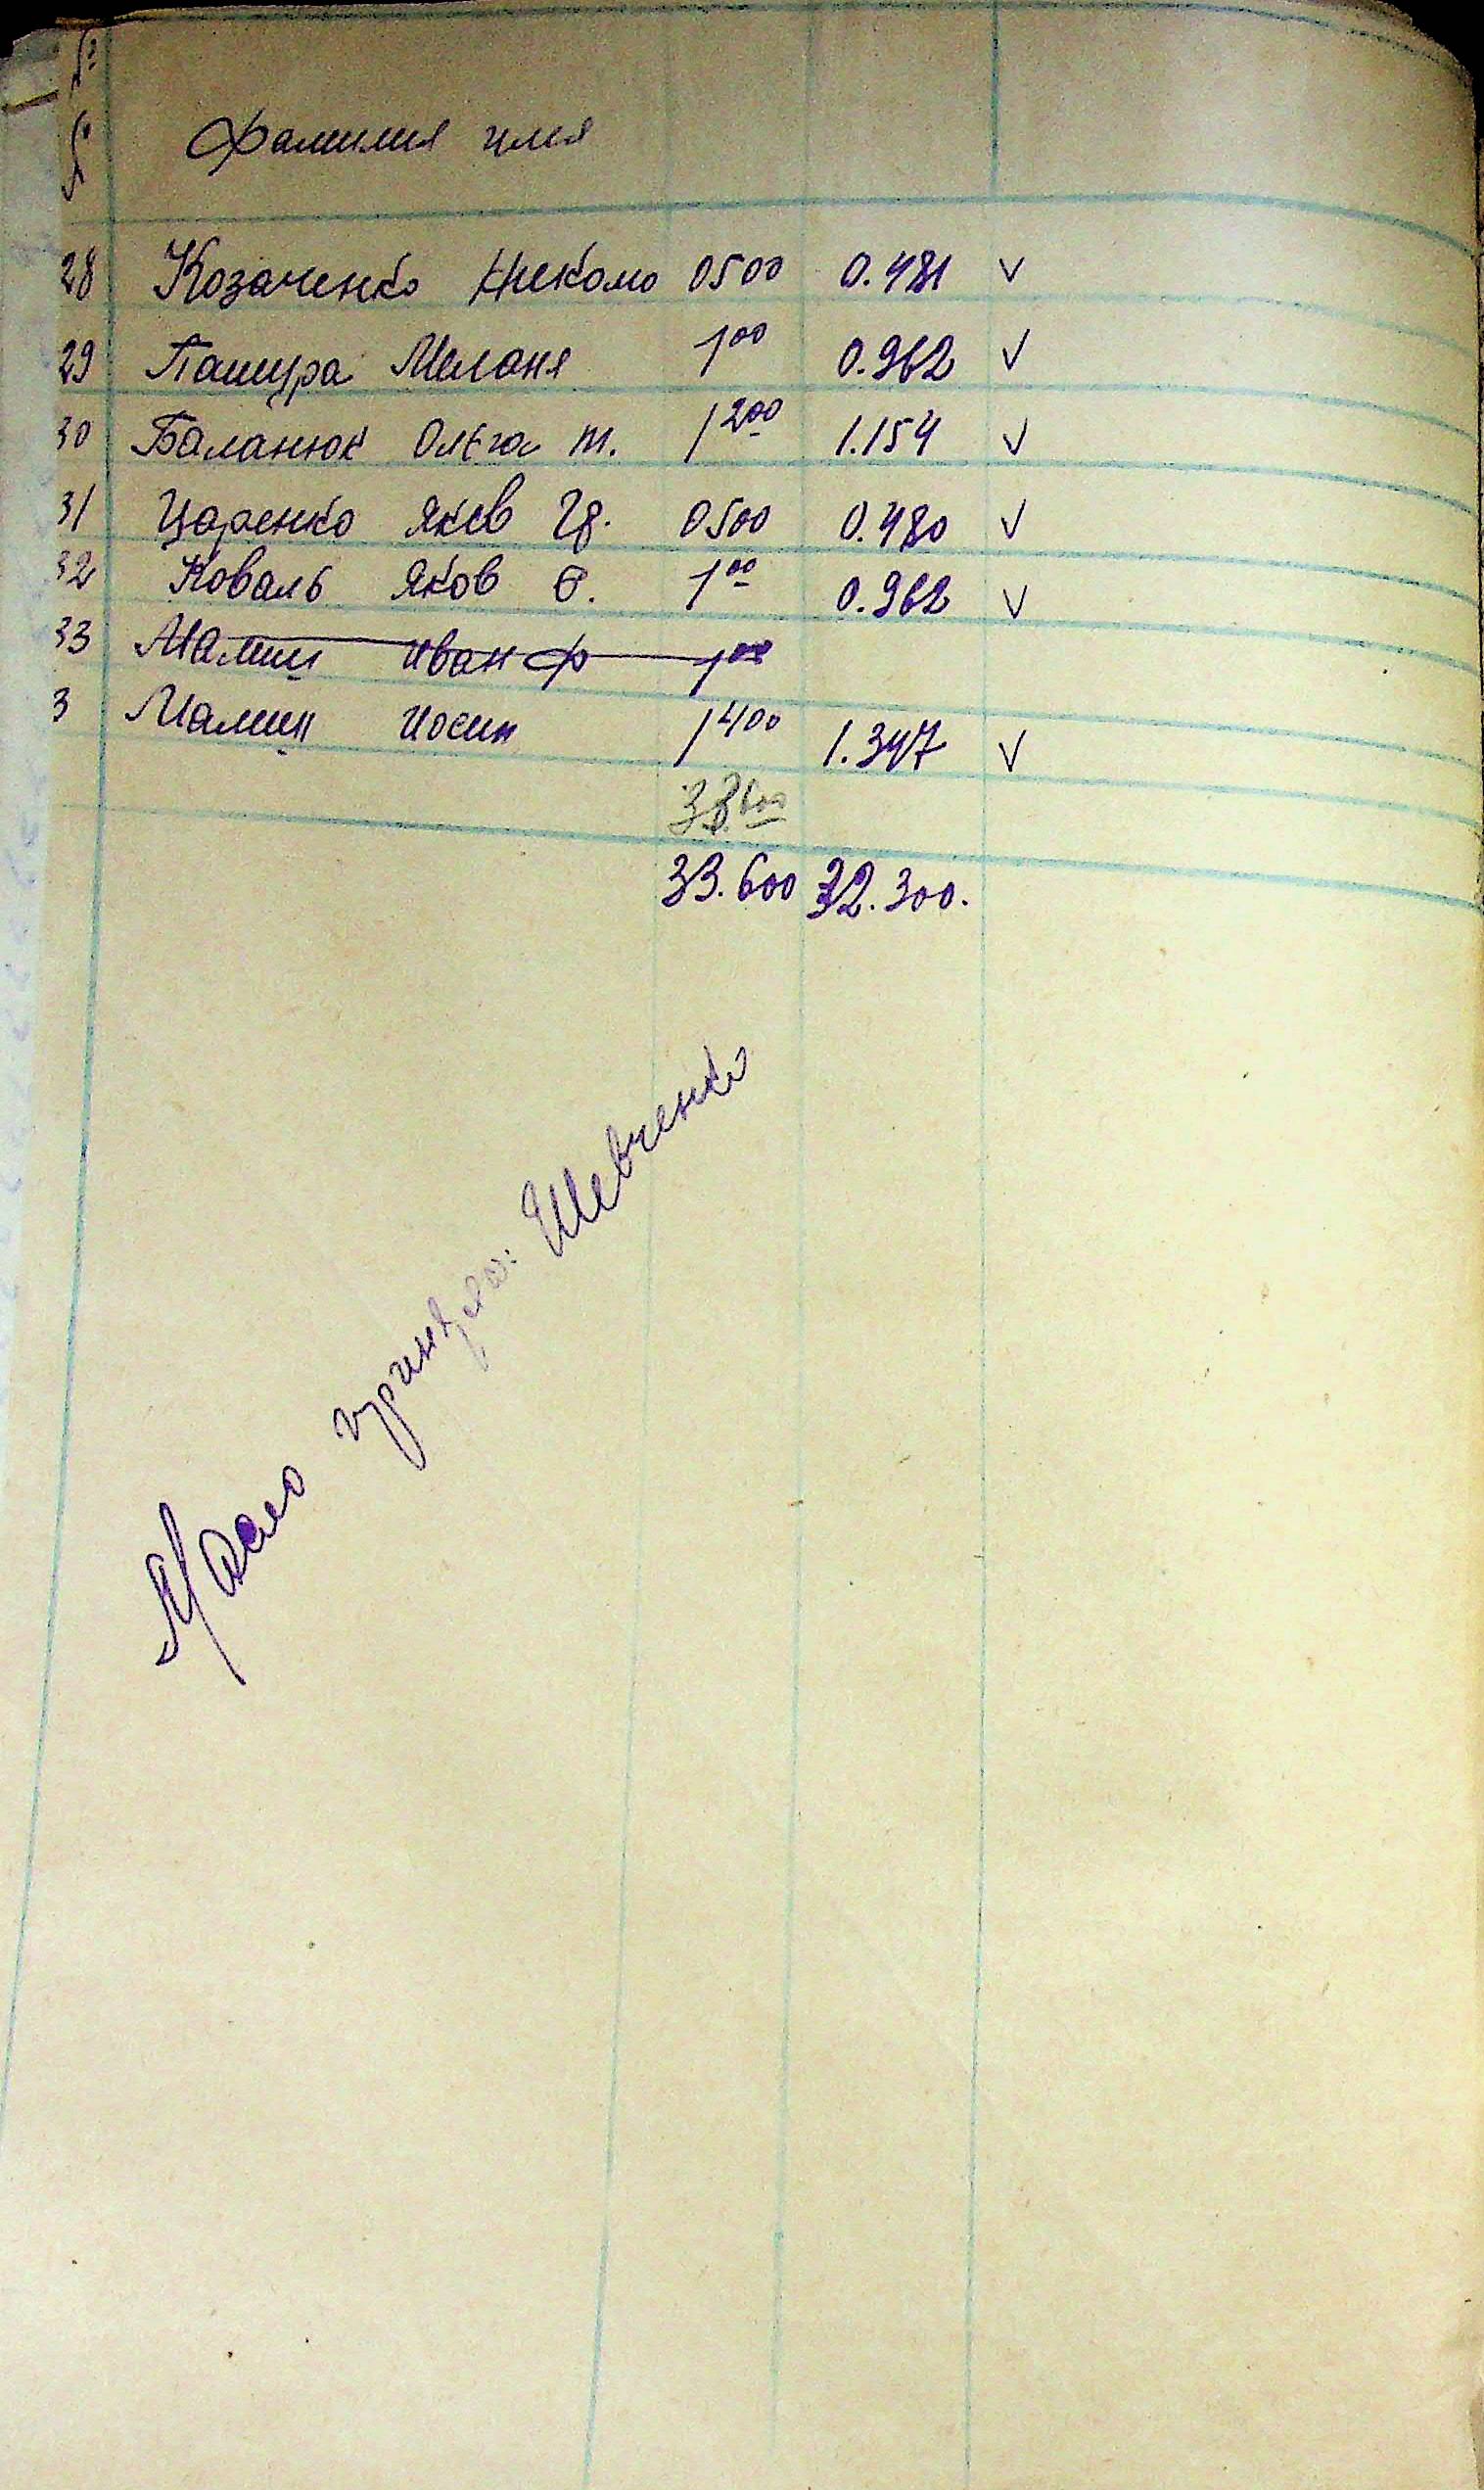 №
№ Фамилия имя
28 Козаченко 0500 0.481 V
29 Пашура Меланя 1 00 0.962 V
30 Баланюк Ольга т. 1 200 1.154 V
31 Царенко Яков Гр. 0500 0.480 V
32 Коваль Яков 1 00 0.962 V
33 Малиш Иван Ф 1 00
3 Малиш Иосип 1 400 1.347 V
33.600 32.300.
Масло приняла: Шевченко